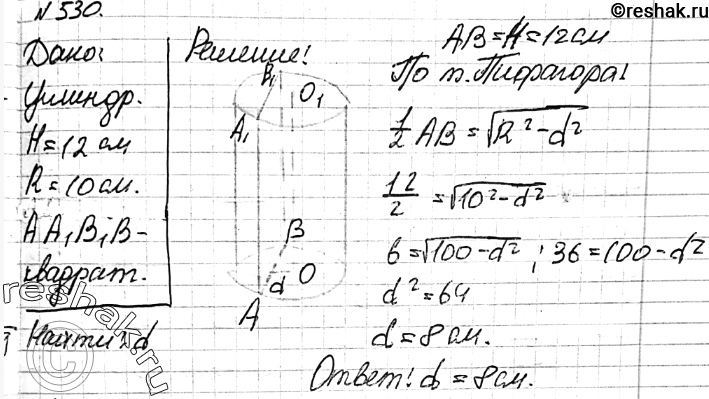 N 530.
©reshak.ru
Дано:
Цилиндр.
H=12 см
R=10 см.
AA₁B₁B-
квадрат.
Найти: d
Решение!
B₁
O₁
A₁
B
d O
A
AB=H=12 см
По т. Пифагора:
1/2 AB = √(R²-d²)
12/2 = √(10²-d²)
6=√(100-d²) ; 36=100-d²
d²=64
d=8 см.
Ответ! d=8 см.
reshak.ru
©